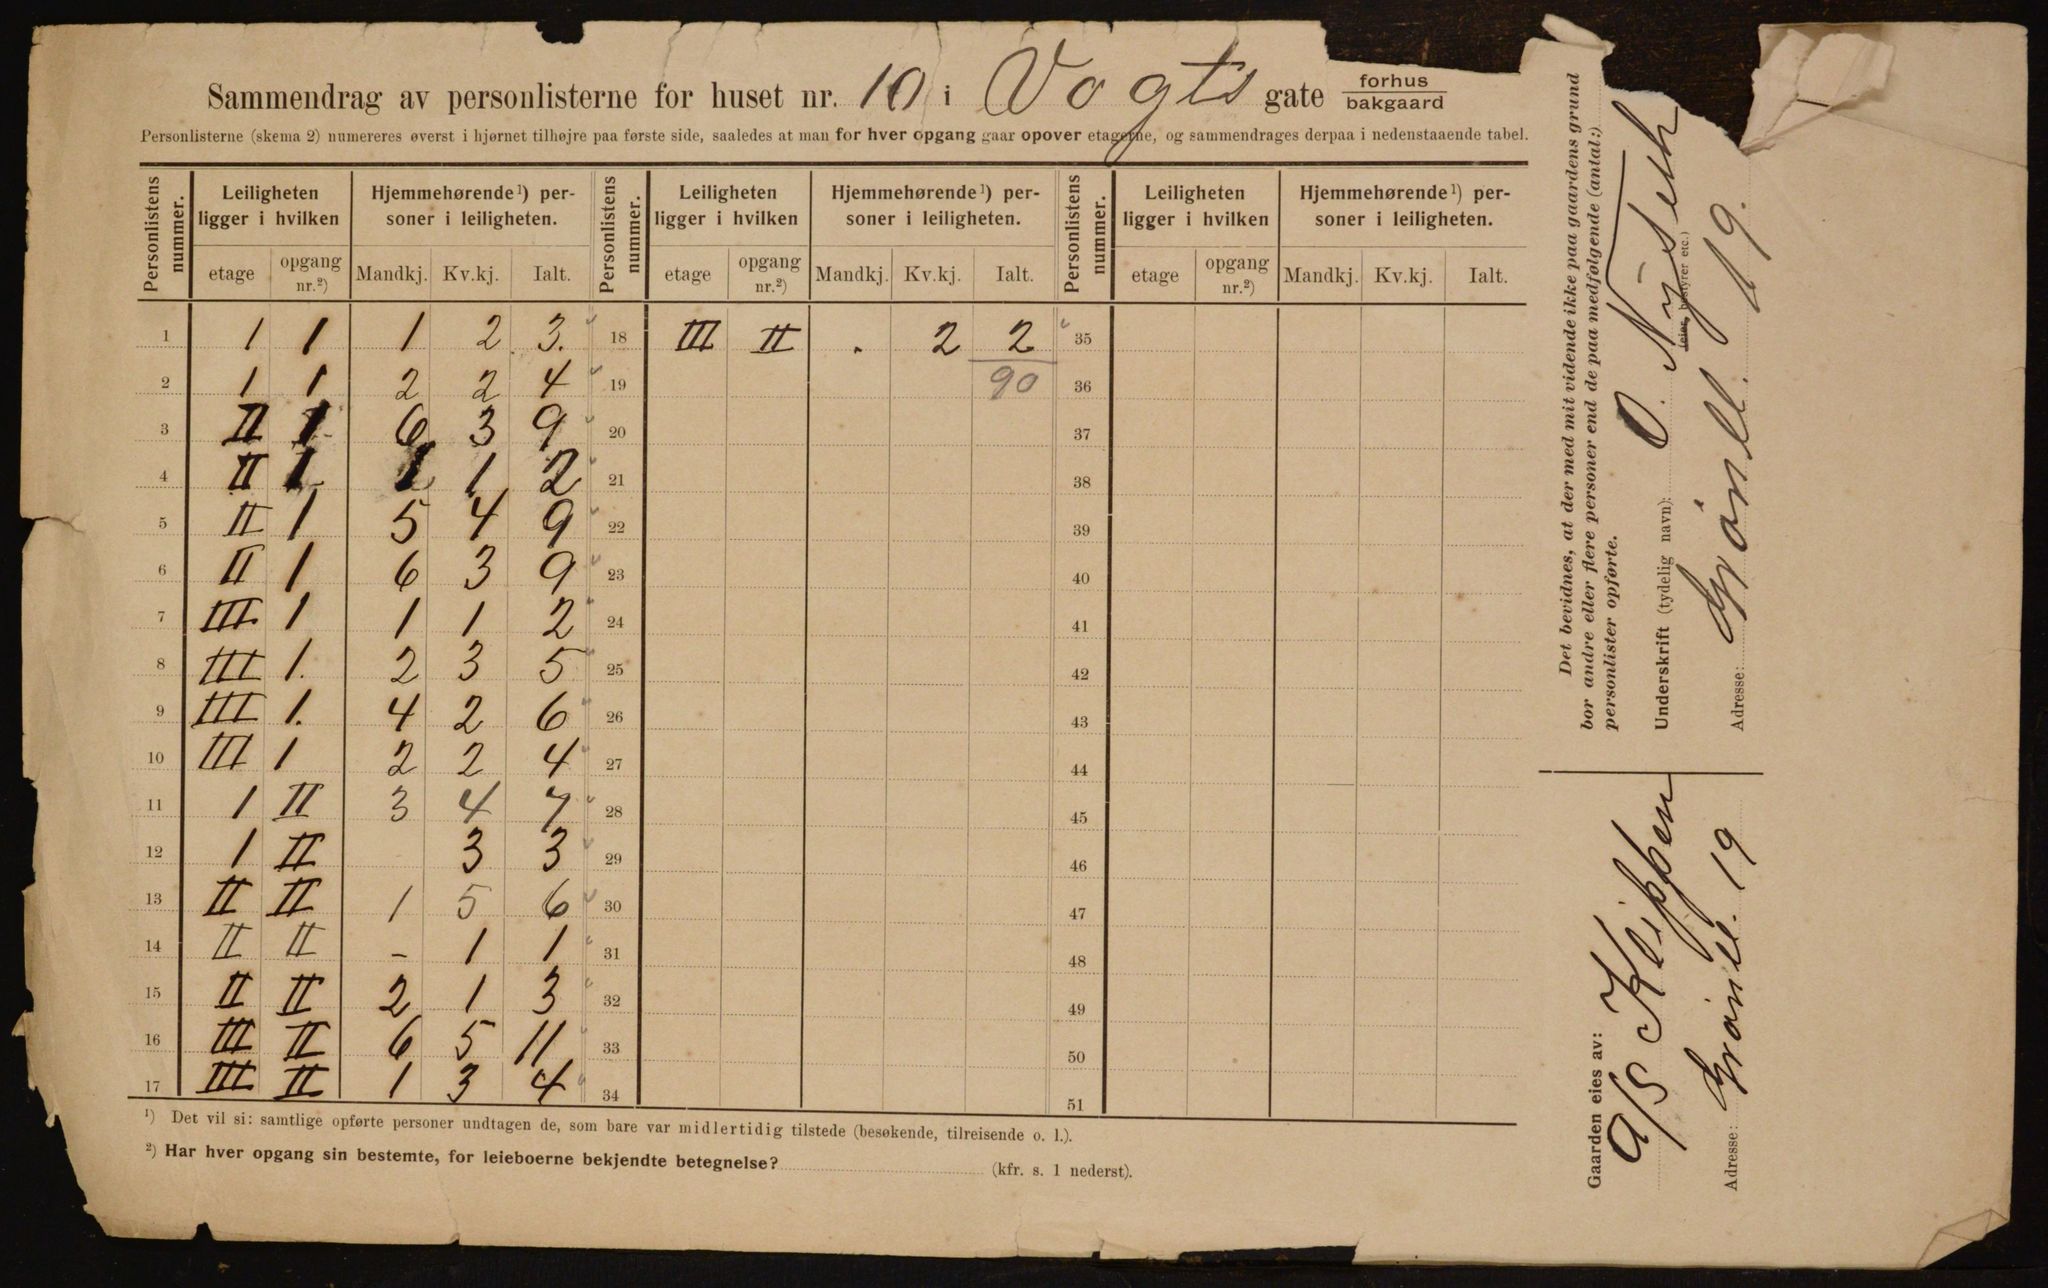 Sammendrag av personlisterne for huset nr. 10 i Vogts gate forhus / bakgaard
Personlisterne (skema 2) numereres øverst i hjørnet tilhøjre paa første side, saaledes at man for hver opgang gaar opover etagerne, og sammendrages derpaa i nedenstaaende tabel.
Personlistens nummer. | Leiligheten ligger i hvilken | Hjemmehørende ¹) personer i leiligheten. | Personlistens nummer. | Leiligheten ligger i hvilken | Hjemmehørende ¹) personer i leiligheten. | Personlistens nummer. | Leiligheten ligger i hvilken | Hjemmehørende ¹) personer i leiligheten.
etage | opgang nr.²) | Mandkj. | Kv.kj. | Ialt. | etage | opgang nr.²) | Mandkj. | Kv.kj. | Ialt. | etage | opgang nr.²) | Mandkj. | Kv.kj. | Ialt.
1 | 1 | 1 | 1 | 2 | 3. | 18 | III | II | . | 2 | 2 | 35
2 | 1 | 1 | 2 | 2 | 4 | 19 | 90 | 36
3 | II | 1 | 6 | 3 | 9 | 20 | 37
4 | II | 1 | 1 | 1 | 2 | 21 | 38
5 | II | 1 | 5 | 4 | 9 | 22 | 39
6 | II | 1 | 6 | 3 | 9 | 23 | 40
7 | III | 1 | 1 | 1 | 2 | 24 | 41
8 | III | 1. | 2 | 3 | 5 | 25 | 42
9 | III | 1. | 4 | 2 | 6 | 26 | 43
10 | III | 1 | 2 | 2 | 4 | 27 | 44
11 | 1 | II | 3 | 4 | 7 | 28 | 45
12 | 1 | II | 3 | 3 | 29 | 46
13 | II | II | 1 | 5 | 6 | 30 | 47
14 | II | II | - | 1 | 1 | 31 | 48
15 | II | II | 2 | 1 | 3 | 32 | 49
16 | III | II | 6 | 5 | 11 | 33 | 50
17 | III | II | 1 | 3 | 4 | 34 | 51
¹) Det vil si: samtlige opførte personer undtagen de, som bare var midlertidig tilstede (besøkende, tilreisende o. l.).
²) Har hver opgang sin bestemte, for leieboerne bekjendte betegnelse? (kfr. s. 1 nederst).
Det bevidnes, at der med mit vidende ikke paa gaardens grund
bor andre eller flere personer end de paa medfølgende (antal:)
personlister opførte.
Underskrift (tydelig navn): O. Nyseth
(eier, bestyrer etc.)
Adresse: Grønll. 19.
Gaarden eies av:
A/S Kleippen
Adresse: Grønll. 19